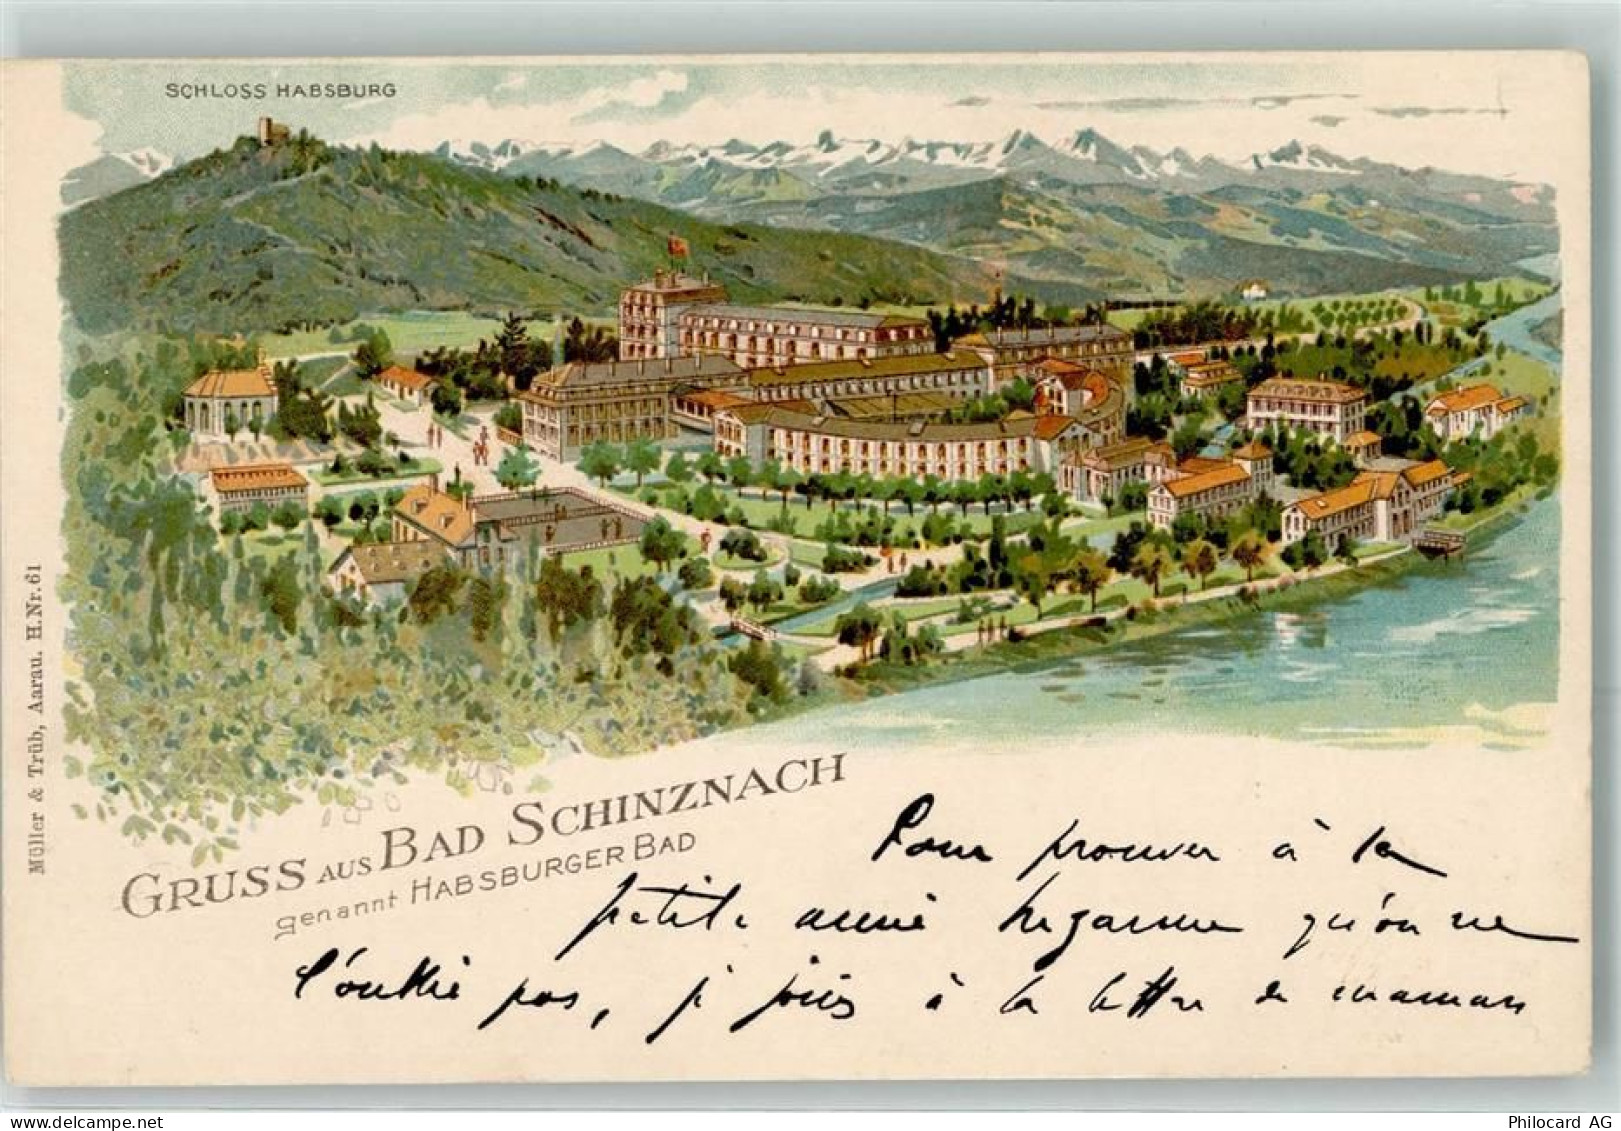 SCHLOSS HABSBURG
Müller & Trüb, Aarau. H.Nr.61
GRUSS AUS BAD SCHINZNACH
genannt HABSBURGER BAD
Pour prouver à la
petite qu'on ne
l'oublie pas, je joins à la lettre de maman
Philocard AG